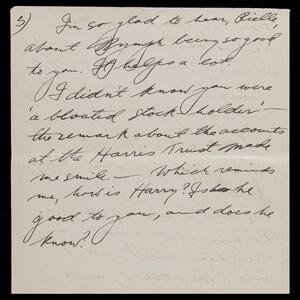 3) I'm so glad to hear, Rielle,
about Nymph being so good
to you. It helps a lot.
I didn't know you were
'a bloated stock-holder' –
the remark about the accounts
at the Harris Trust made
me smile. – Which reminds
me, how is Harry? Is he
good to you, and does he
know?